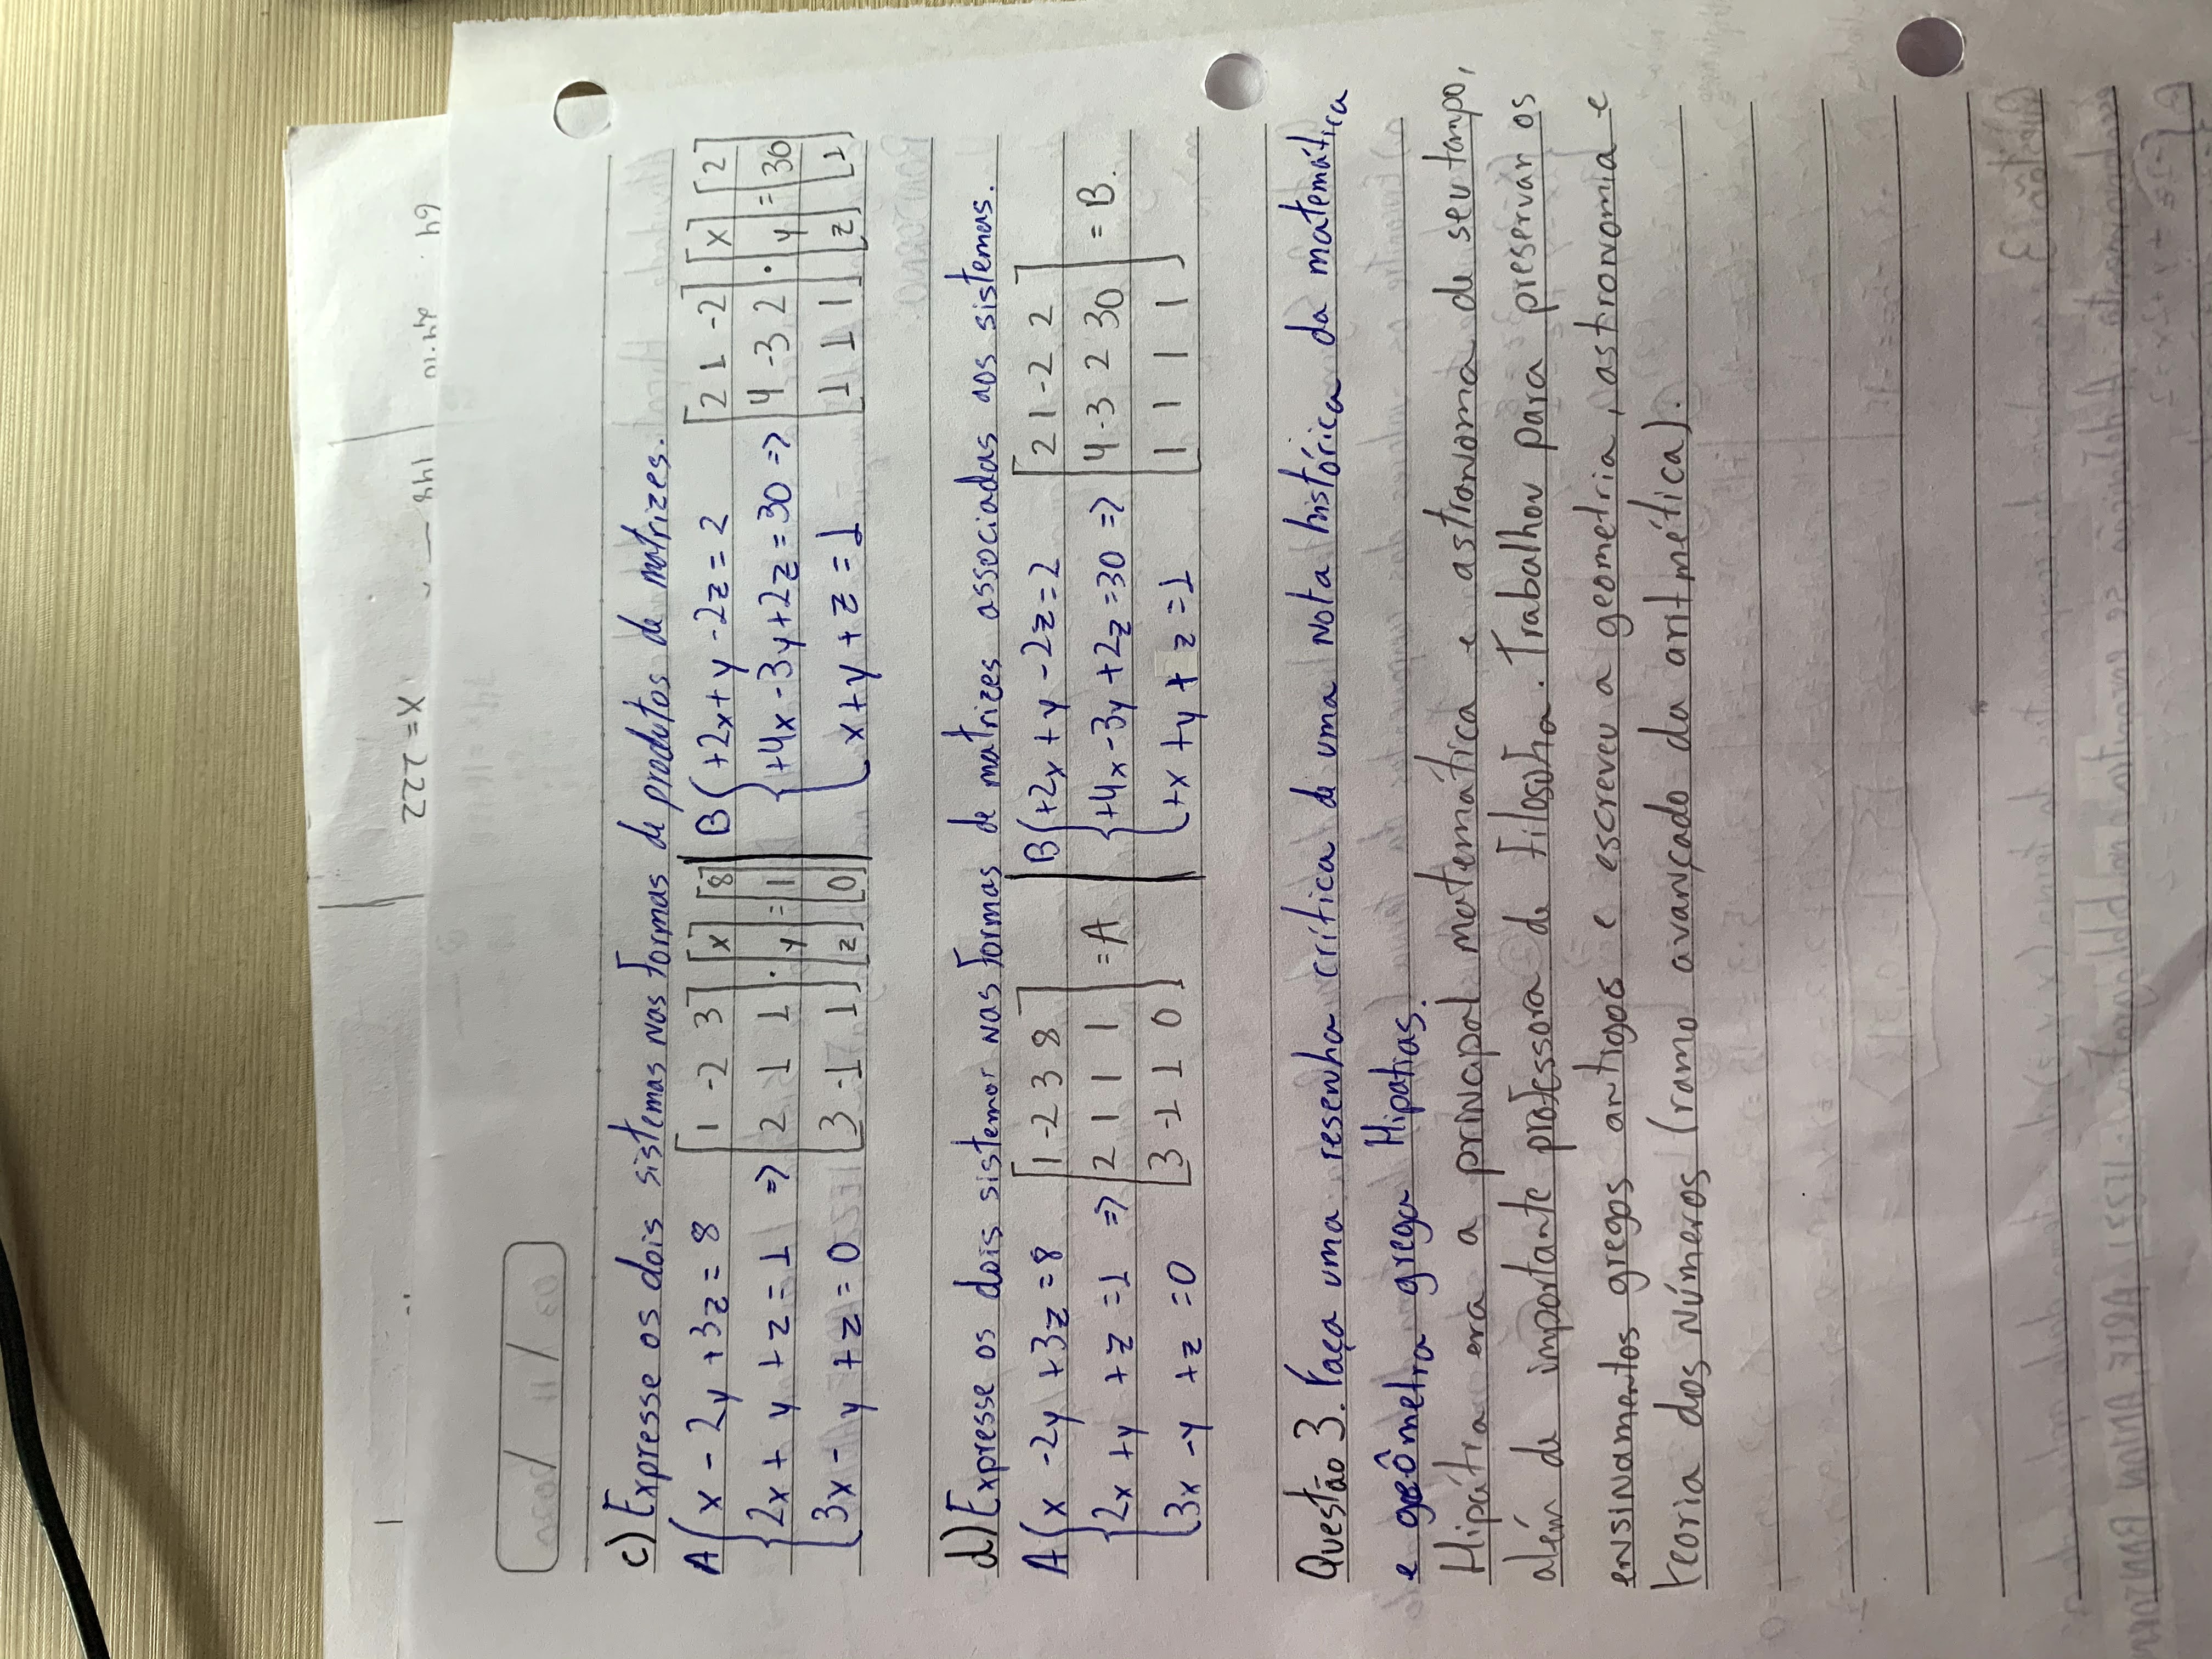 X = 222
148
64
c) Expresse os dois sistemas nas formas de produtos de matrizes.
A { x - 2y + 3z = 8 [1 -2 3] [x] [8] B { +2x + y - 2z = 2 [2 1 -2] [x] [2]
2x + y + z = 1 => [2 1 1] · [y] = [1] +4x - 3y + 2z = 30 => [4 -3 2] · [y] = [30]
3x - y + z = 0 [3 -1 1] [z] [0] x + y + z = 1 [1 1 1] [z] [1]
d) Expresse os dois sistemor nas formas de matrizes associadas aos sistemas.
A { x - 2y + 3z = 8 [1 -2 3 8] B { +2x + y - 2z = 2 [2 1 -2 2]
2x + y + z = 1 => [2 1 1 1] = A +4x - 3y + 2z = 30 => [4 -3 2 30] = B.
3x - y + z = 0 [3 -1 1 0] +x + y + z = 1 [1 1 1 1]
Questão 3. Faça uma resenha crítica de uma nota histórica da matemática
e geômetra grega Hipatias.
Hipátia era a principal matemática e astronoma de seu tampo,
além de importante professora de filosofia. Trabalhou para preservar os
ensinamentos gregos antigos e escreveu a geometria, astronomia e
teoria dos números (ramo avançado da aritmética).